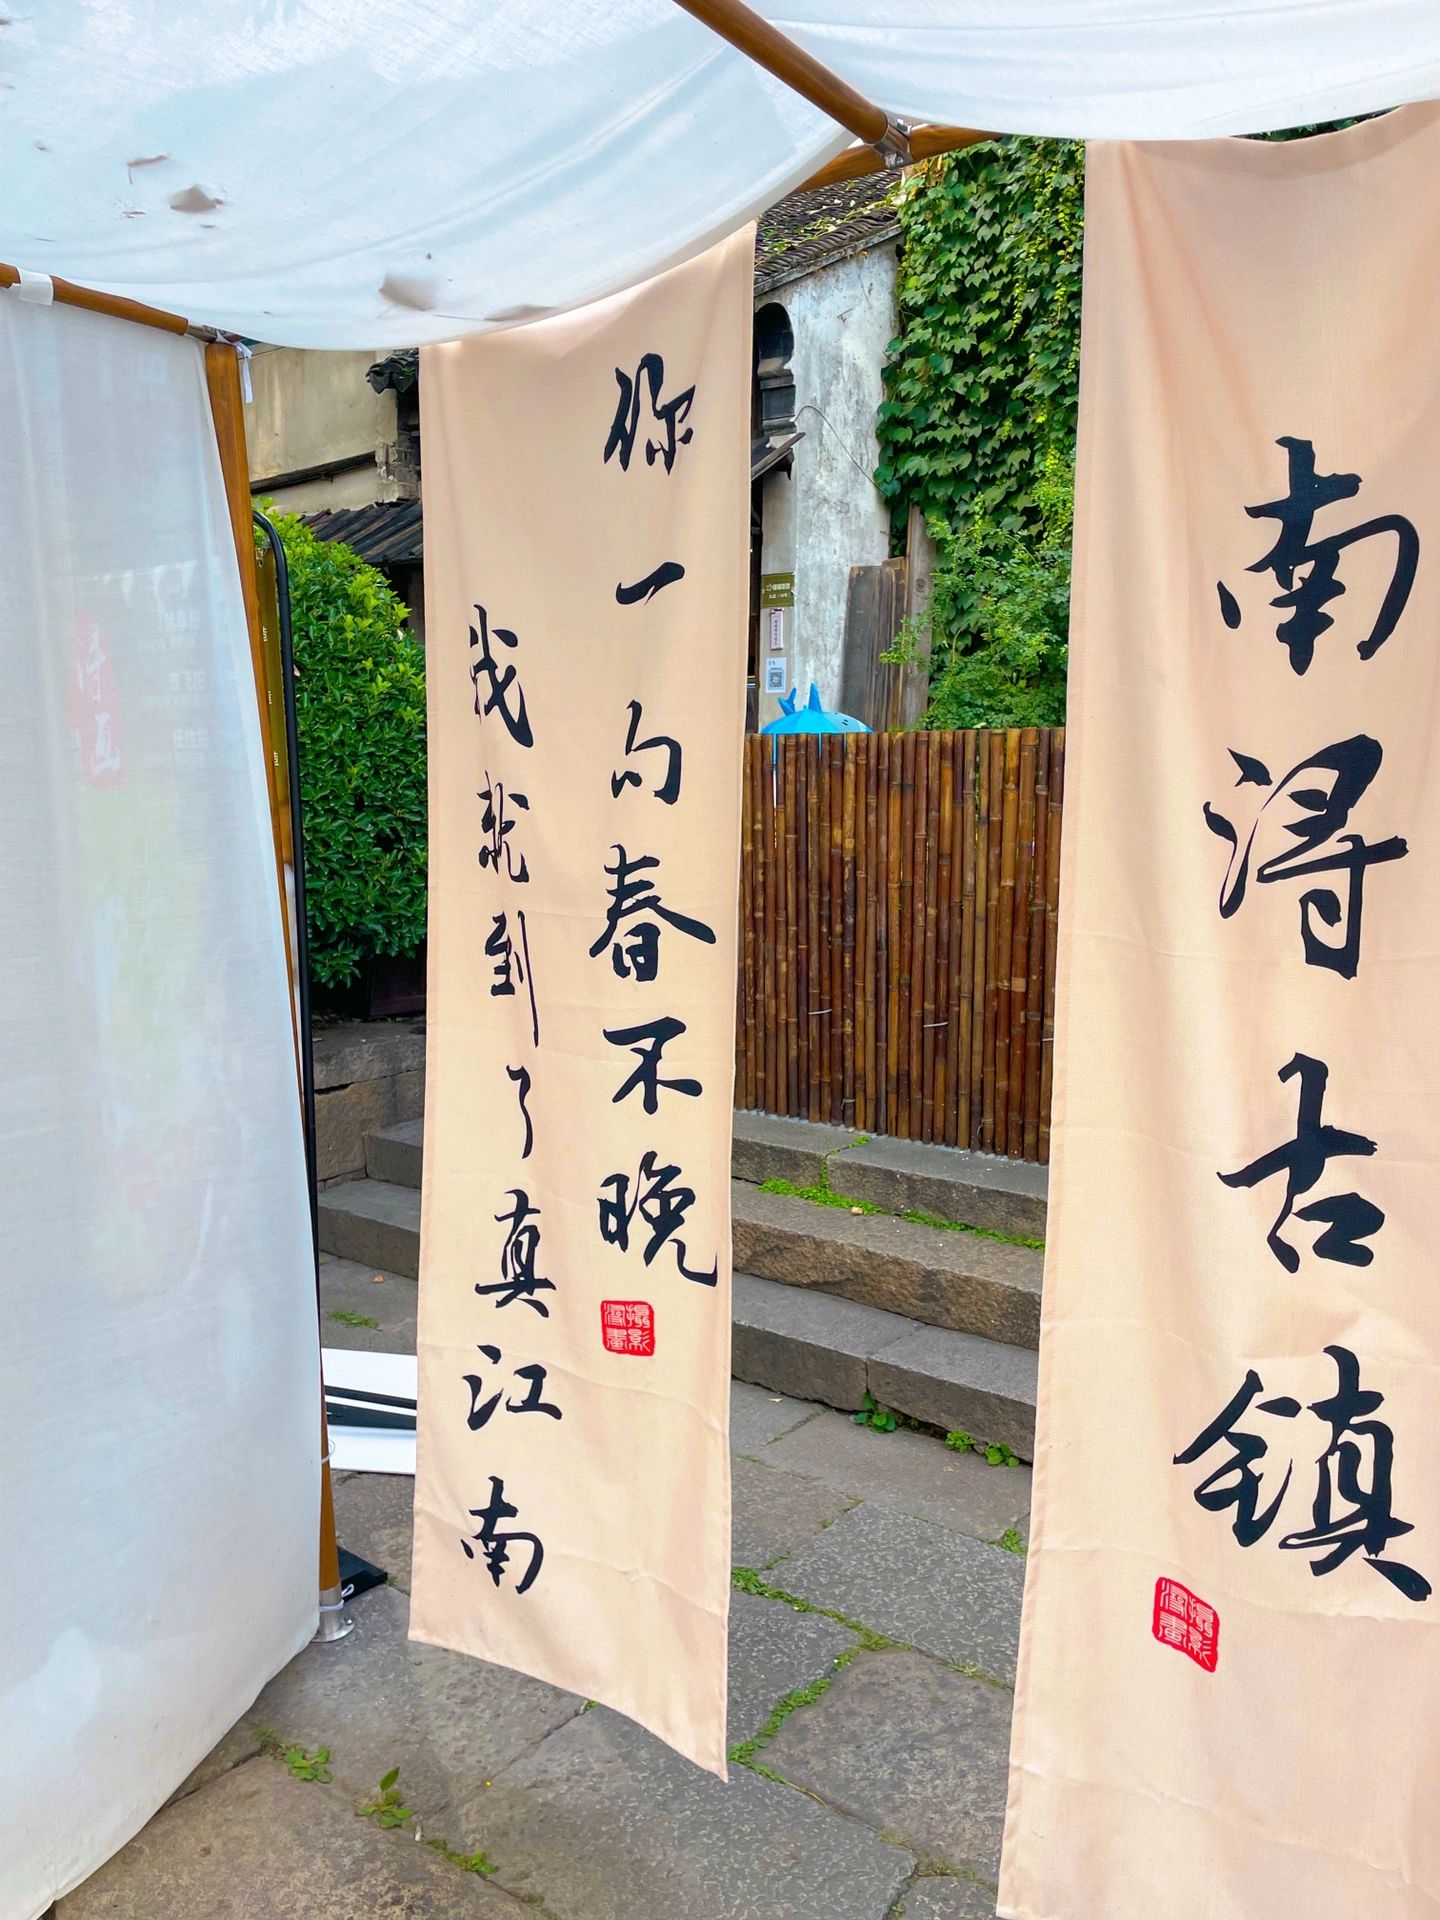 南浔古镇
你一句春不晚
我就到了真江南